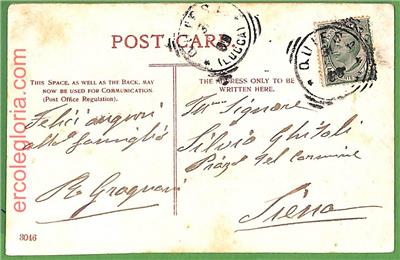 POST CARD
THIS SPACE, AS WELL AS THE BACK, MAY
NOW BE USED FOR COMMUNICATION.
(Post Office Regulation).
THE ADDRESS ONLY TO BE
WRITTEN HERE.
(LUCCA)
Felici auguri
alla famiglia
Ill.mo Signore
Silvio
Piazza del Carmine
Siena
3046
ercolegloria.com